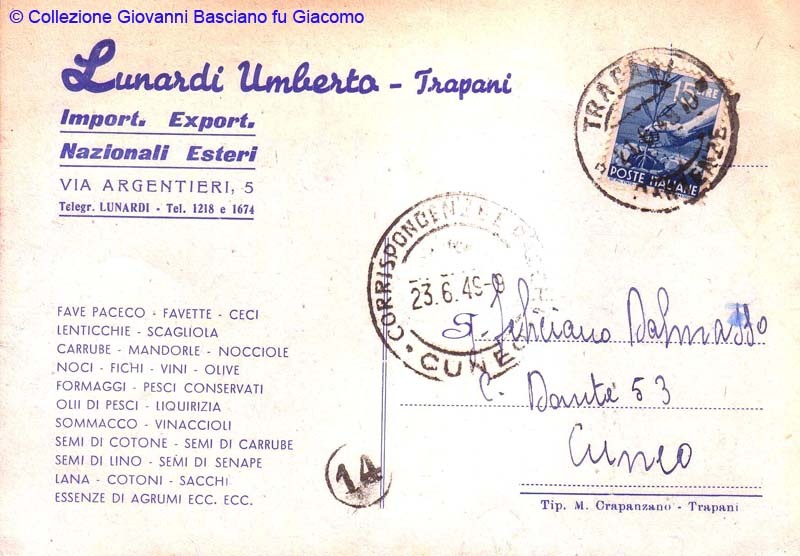 © Collezione Giovanni Basciano fu Giacomo
Lunardi Umberto - Trapani
Import. Export.
Nazionali Esteri
VIA ARGENTIERI, 5
Telegr. LUNARDI - Tel. 1218 e 1674
15 LIRE
POSTE ITALIANE
TRAPANI
PARTENZE
CORRISPONDENZE
23.6.49-9
CUNEO
FAVE PACECO - FAVETTE - CECI
LENTICCHIE - SCAGLIOLA
CARRUBE - MANDORLE - NOCCIOLE
NOCI - FICHI - VINI - OLIVE
FORMAGGI - PESCI CONSERVATI
OLII DI PESCI - LIQUIRIZIA
SOMMACCO - VINACCIOLI
SEMI DI COTONE - SEMI DI CARRUBE
SEMI DI LINO - SEMI DI SENAPE
LANA - COTONI - SACCHI
ESSENZE DI AGRUMI ECC. ECC.
14
Dalmasso
C. Dante 53
Cuneo
Tip. M. Crapanzano - Trapani